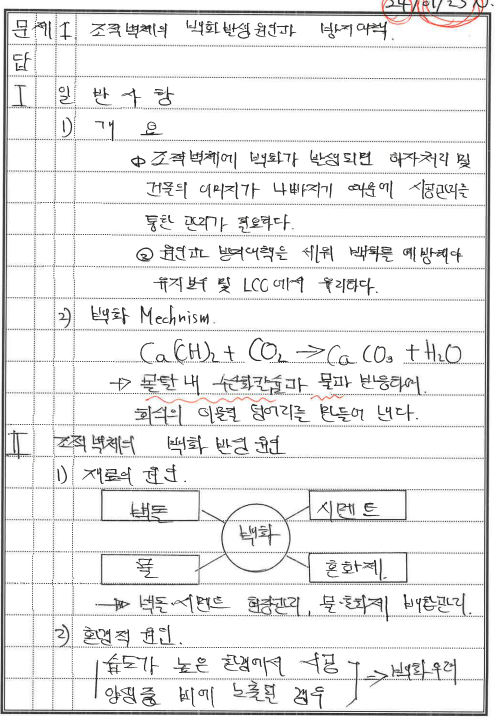 24/01/25
문제 1. 조적벽체의 백화발생원인과 방지대책.
답
I 일반사항
1) 개요
① 조적벽체에 백화가 발생되면 하자처리 및
건물의 이미지가 나빠지기 때문에 시공관리를
통한 관리가 필요하다.
② 원인과 방지대책을 세워 백화를 예방해야
유지보수 및 LCC에서 유리하다.
2) 백화 Mechnism.
Ca(OH)₂ + CO₂ → CaCO₃ + H₂O
→ 몰탈 내 수산화칼슘과 물과 반응하여.
회색의 이물질 덩어리를 만들어 낸다.
II 조적벽체의 백화발생원인
1) 재료의 원인.
벽돌 시멘트
백화
물 혼화제.
→ 벽돌·시멘트 함량관리, 물·혼화제 배합관리.
2) 환경적 원인.
습도가 높은 환경에서 시공
양생중 비에 노출된 경우 ⇒ 백화우려